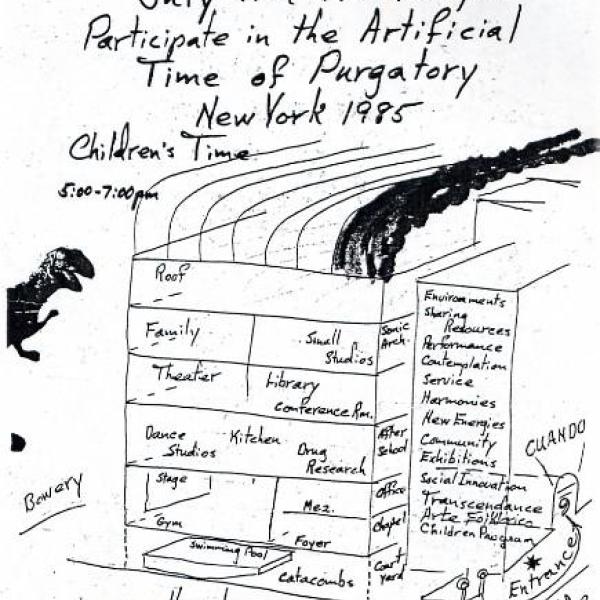 Participate in the Artificial
Time of Purgatory
New York 1985
Children's Time
5:00-7:00pm
Roof
Family
Small
Studios
Sonic
Arch.
Theater
Library
Conference Rm.
Dance
Studios
Kitchen
Drug
Research
After
School
Stage
Gym
Mez.
Foyer
Office
Chapel
Swimming Pool
Catacombs
Court
yard
Environments
Sharing
Resources
Performance
Contemplation
Service
Harmonies
New Energies
Community
Exhibitions
Social Innovation
Transcendance
Arte Folklorico
Children Program
CUANDO
Bowery
Entrance